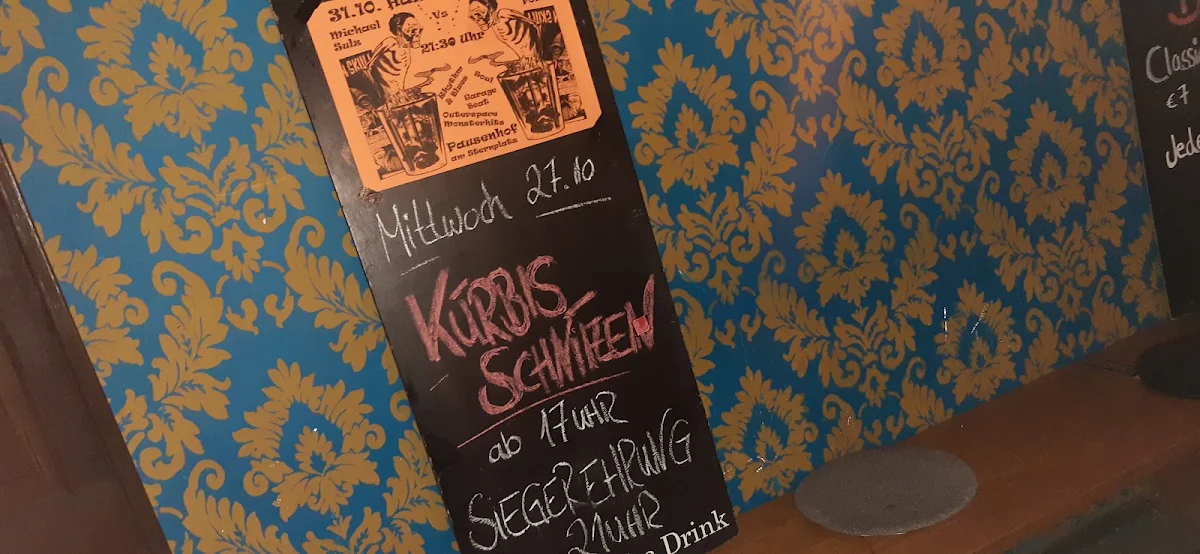 31.10.
Michael
Sulz
Vs
21:30 Uhr
Rhythm
& Blues
Soul
Garage
Beat
Outerspace
Monsterhits
Pausenhof
am Sternplatz
Mittwoch 27.10
KÜRBIS
SCHNITZEN
ab 17 UHR
SIEGEREHRUNG
21 UHR
Drink
Classi
€7
Jede